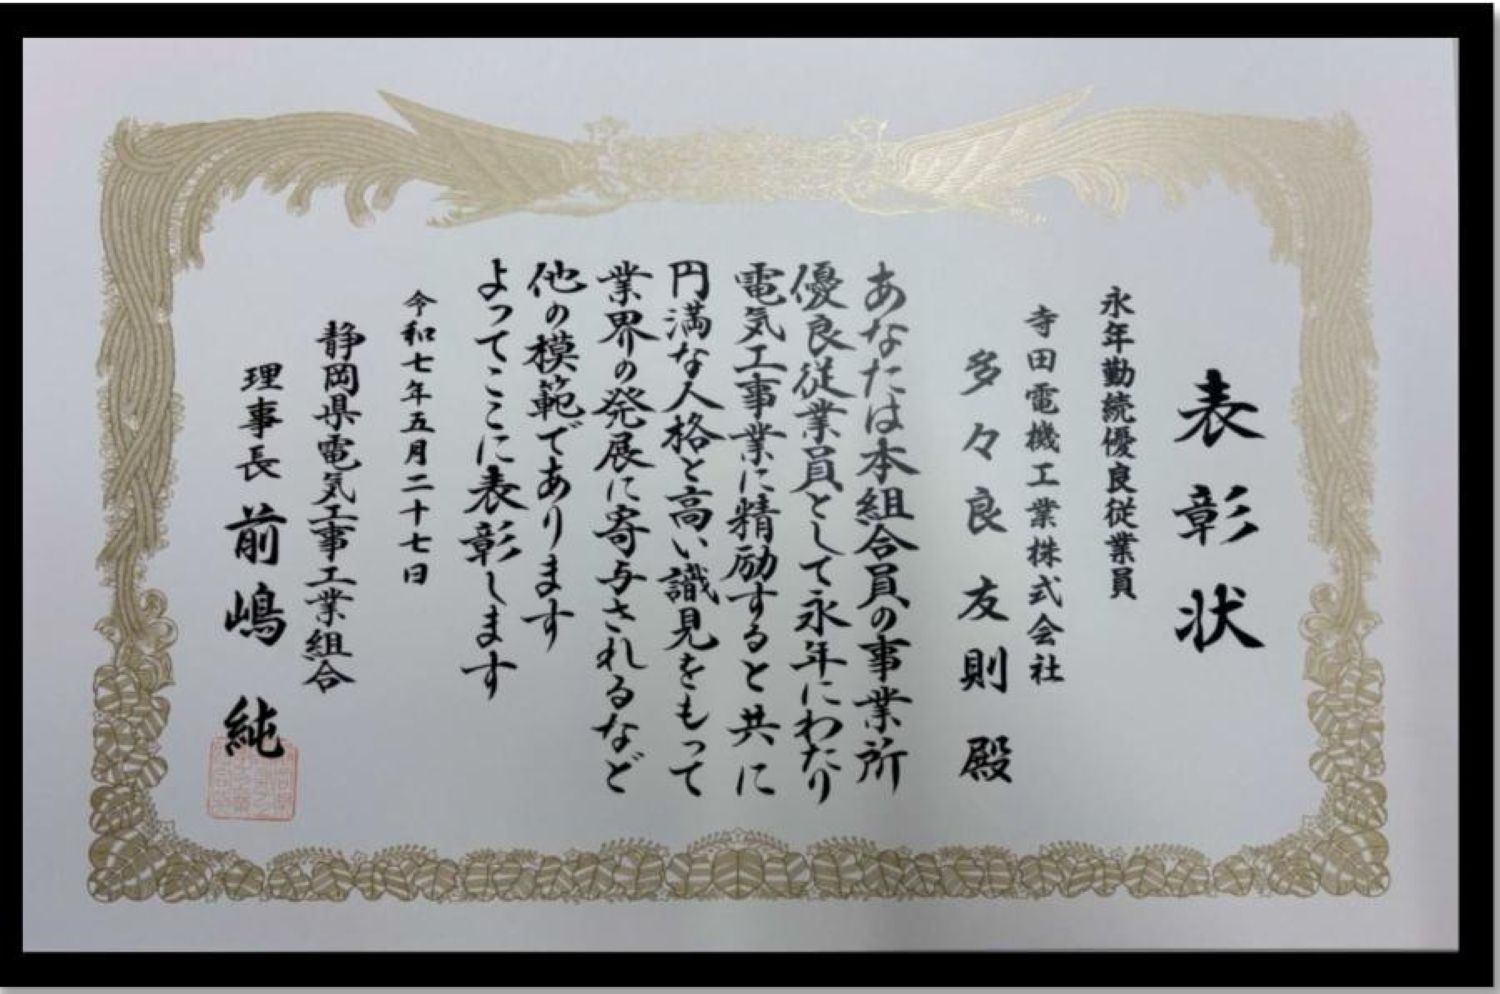 表彰状
永年勤続優良従業員
寺田電機工業株式会社
多々良友則殿
あなたは本組合員の事業所
優良従業員として永年にわたり
電気工事業に精励すると共に
円満な人格と高い識見をもって
業界の発展に寄与されるなど
他の模範であります
よってここに表彰します
令和七年五月二十七日
静岡県電気工事工業組合
理事長前嶋純